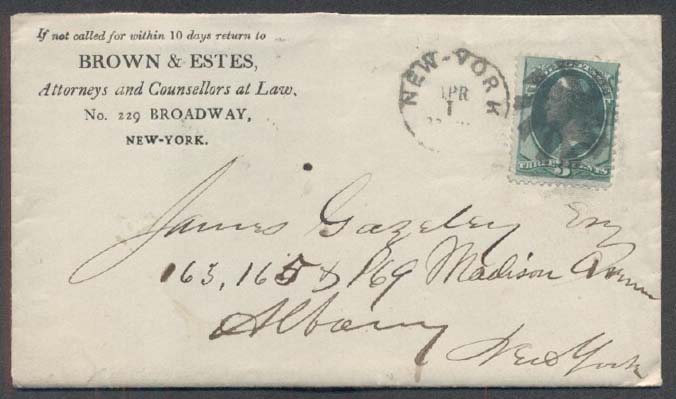 If not called for within 10 days return to
BROWN & ESTES,
Attorneys and Counsellors at Law,
No. 229 BROADWAY,
NEW-YORK.
NEW-YORK
APR
1
THREE CENTS
3
James Gazeley Esq
163, 165 & 169 Madison Avenue
Albany
New York